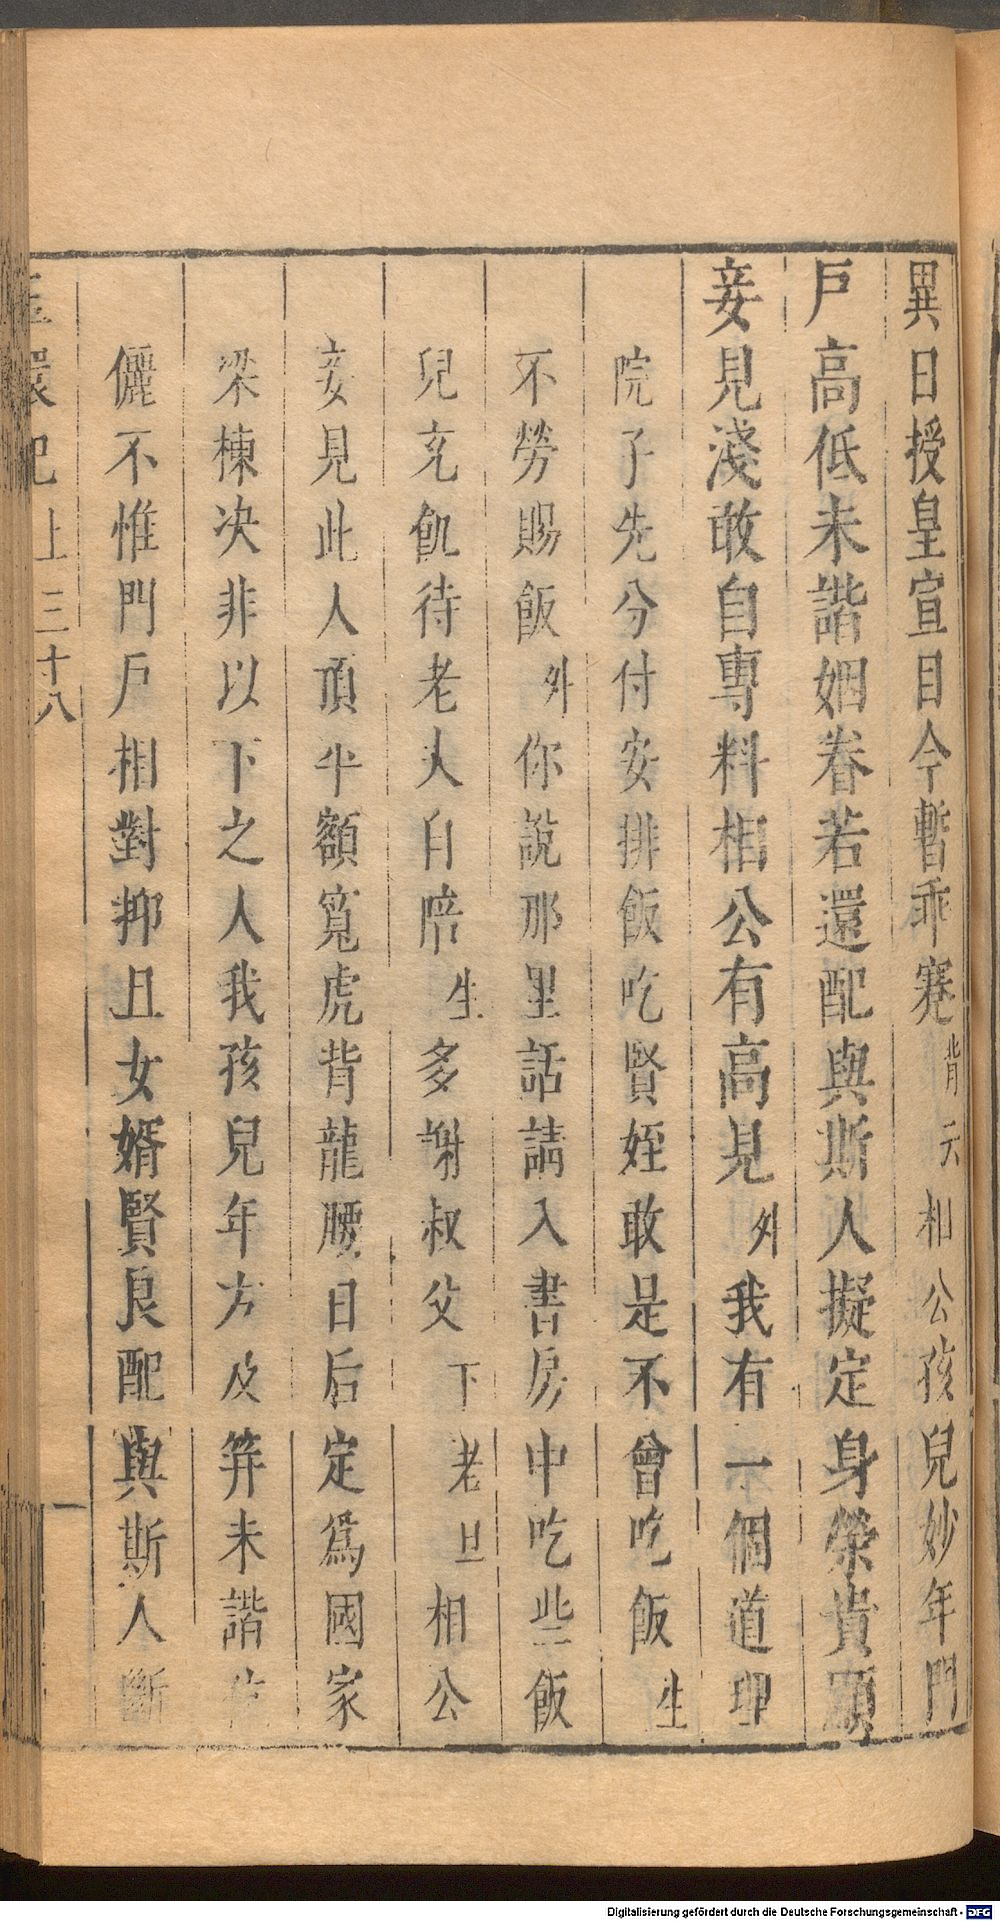 異日授皇宣目今暫乖蹇背云相公孩兒妙年門
戸高低未諧姻眷若還配與斯人擬定身榮貴顯
妾見淺敢自專料相公有高見外我有一個道理
院子先分付安排飯吃賢姪敢是不曾吃飯生
不勞賜飯外你説那里話請入書房中吃些飯
兒充飢待老人自陪生多謝叔父下老旦相公
妾見此人頂平額寬虎背龍腰日后定爲國家
梁棟决非以下之人我孩兒年方及笄未諧
儷不惟門戸相對抑且女婿賢良配與斯人斷
環記上三十八
Digitalisierung gefördert durch die Deutsche Forschungsgemeinschaft - DFG